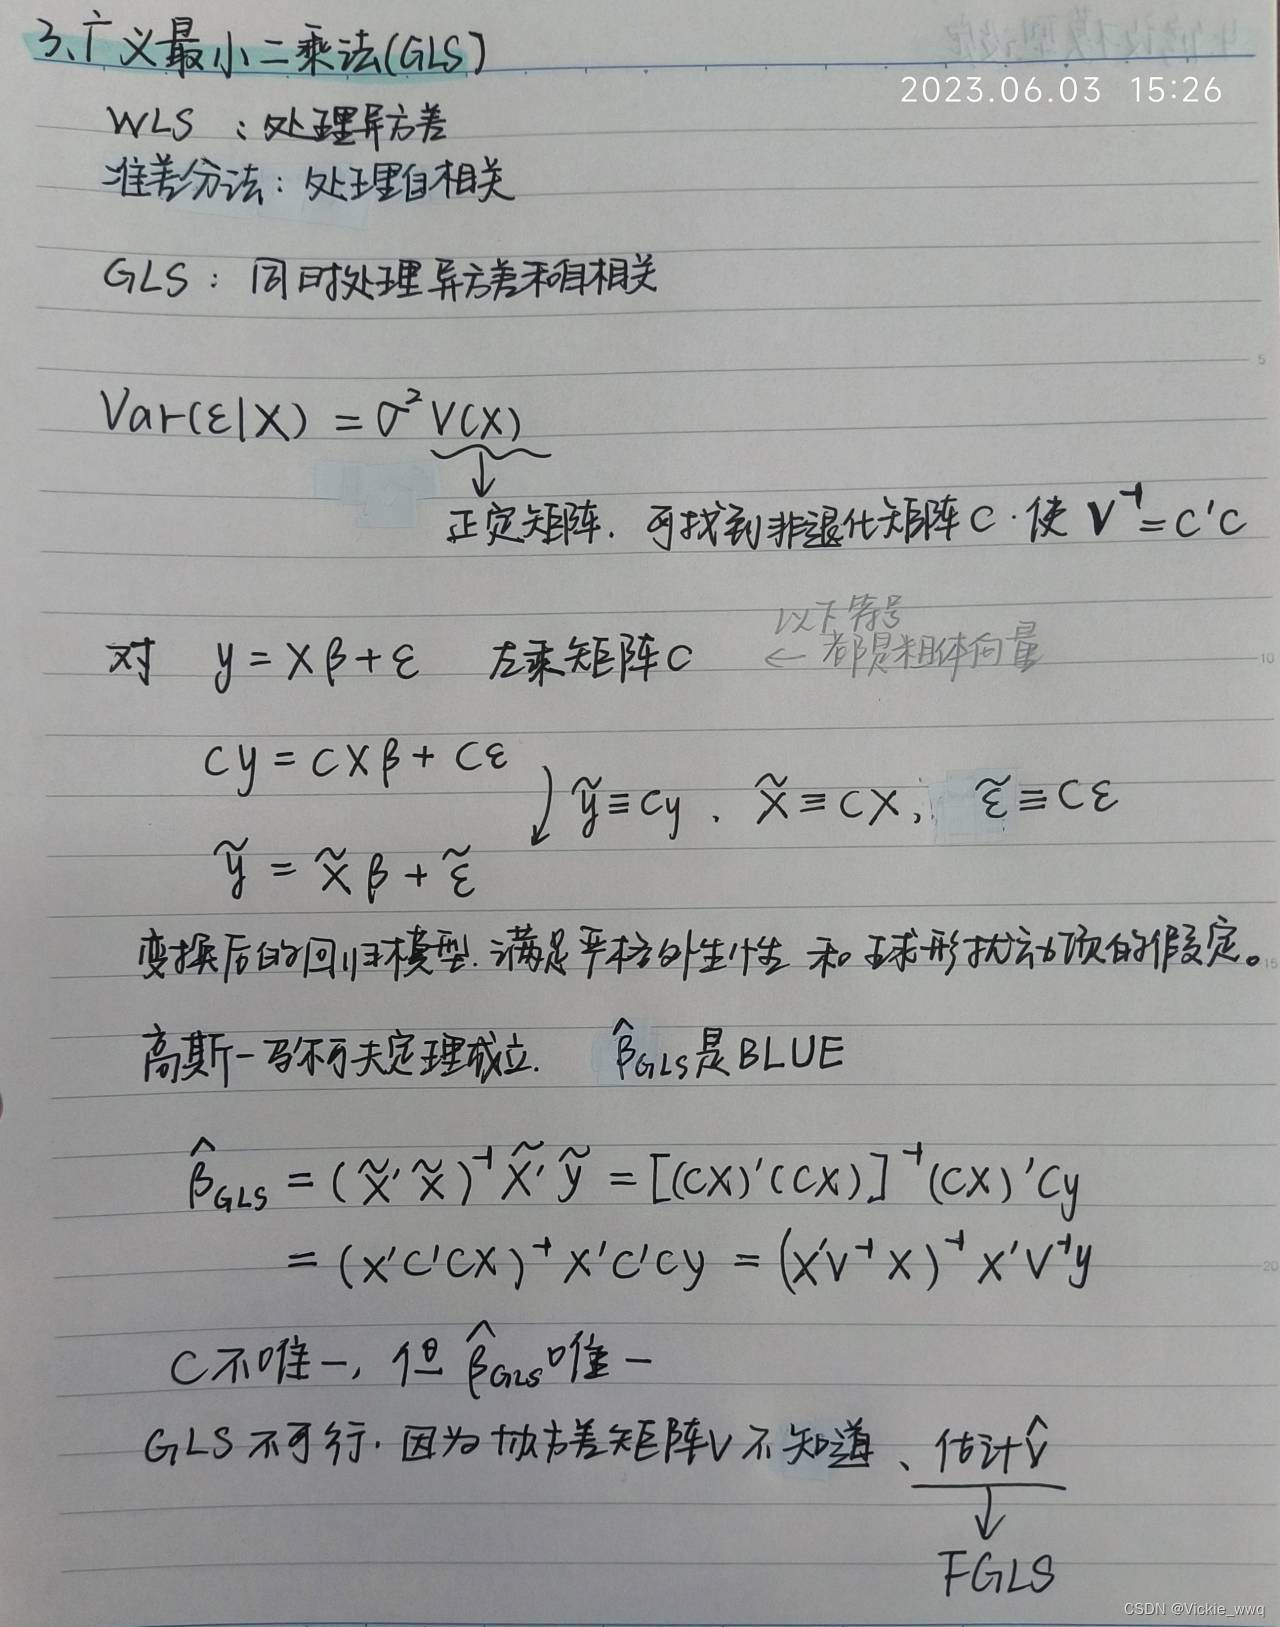 3、广义最小二乘法(GLS)
2023.06.03 15:26
WLS：处理异方差
准差分法：处理自相关
GLS：同时处理异方差和自相关
Var(ε|X) = σ² V(X)
正定矩阵．可找到非退化矩阵C．使 V⁻¹=C'C
以下符号
对 y = Xβ + ε 左乘矩阵C ← 都是粗体向量
Cy = CXβ + Cε
ỹ ≡ Cy ． X̃ ≡ CX； ε̃ ≡ Cε
ỹ = X̃β + ε̃
变换后的回归模型．满足严格外生性 和 球形扰动项的假定。
高斯-马尔可夫定理成立． β̂GLS是BLUE
β̂GLS = (X̃'X̃)⁻¹X̃'ỹ = [(CX)'(CX)]⁻¹(CX)'Cy
= (X'C'CX)⁻¹X'C'Cy = (X'V⁻¹X)⁻¹X'V⁻¹y
C不唯一，但β̂GLS唯一
GLS不可行．因为协方差矩阵V不知道、估计V̂
FGLS
CSDN @Vickie_wwq